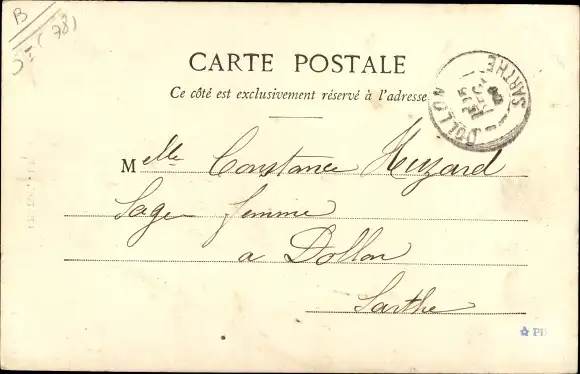 B
(78)
CARTE POSTALE
Ce côté est exclusivement réservé à l'adresse
DOLLON
SARTHE
Melle Constance Huzard
Sage femme
a Dollon
Sarthe